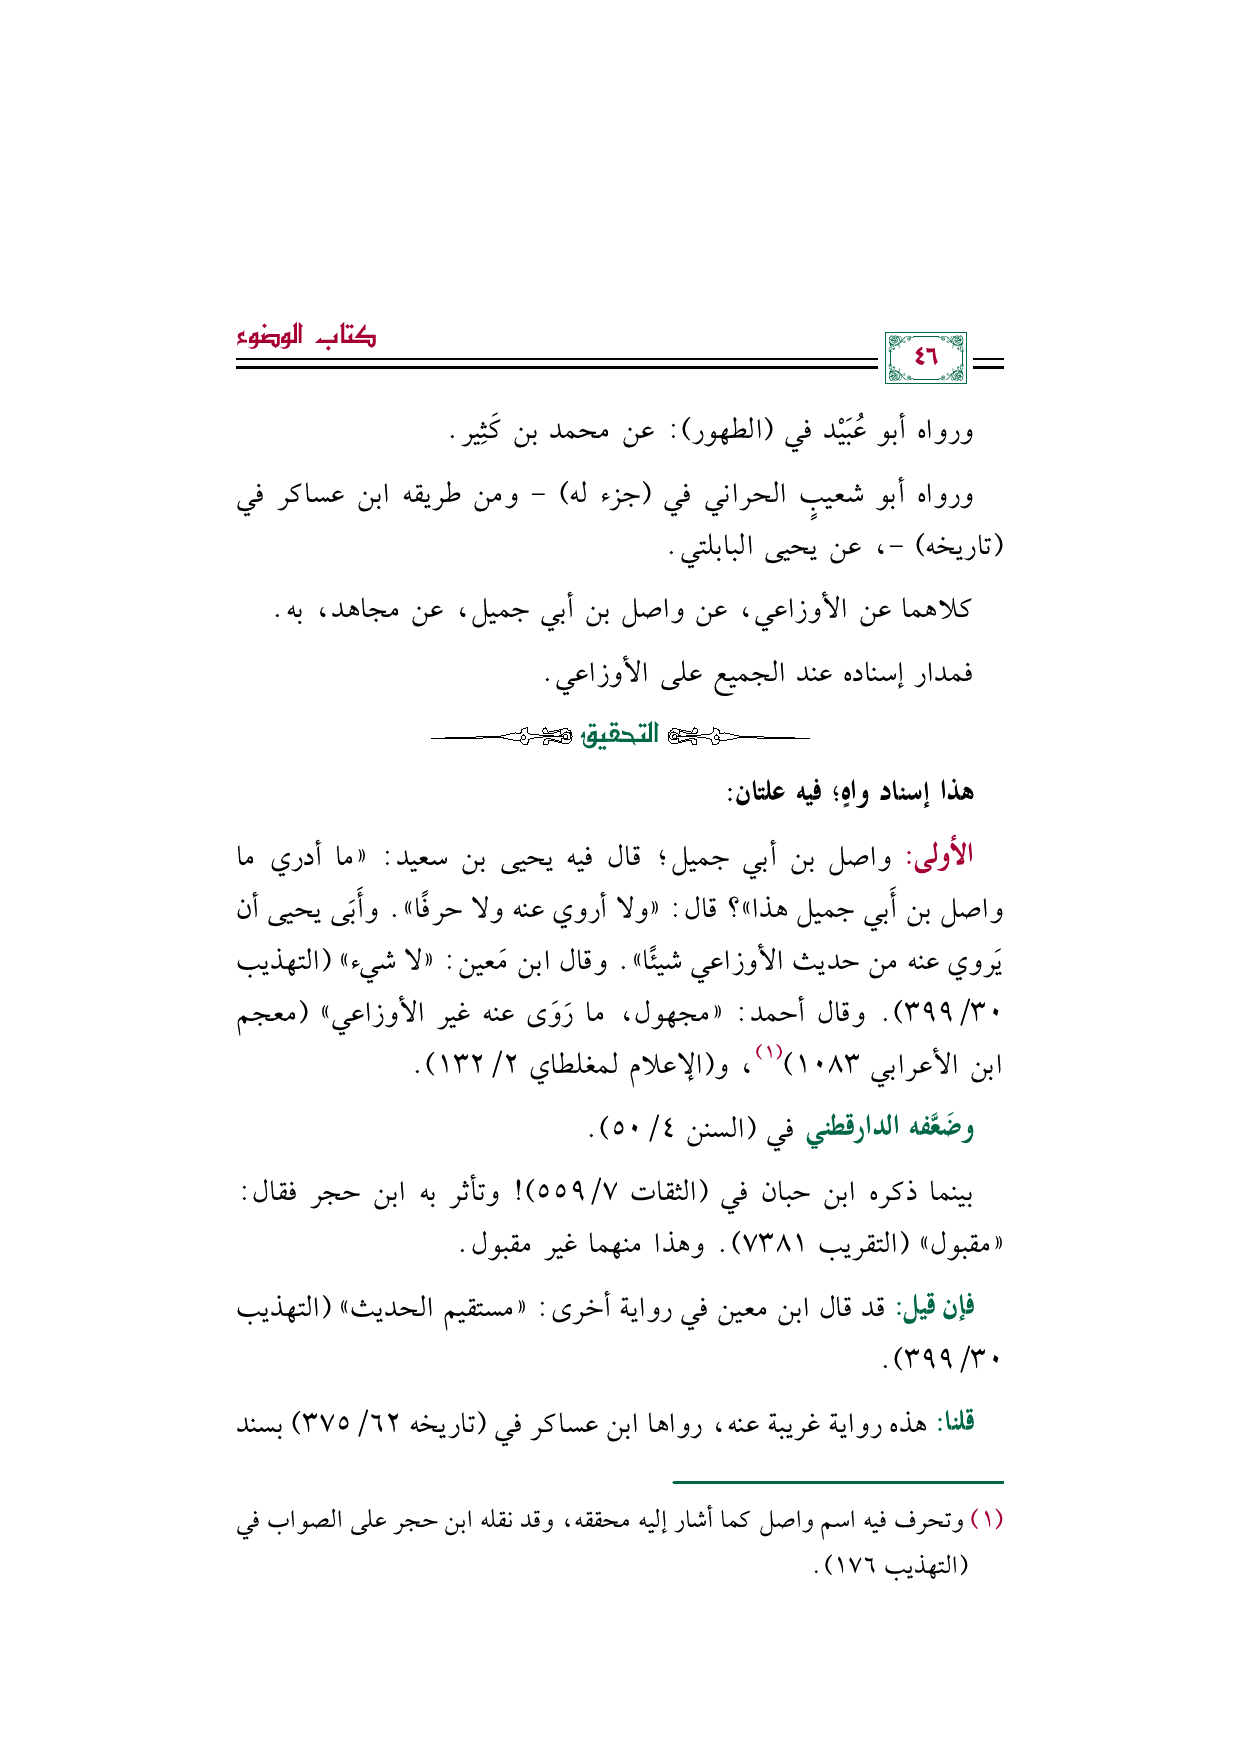 كتاب الوضوء
٤٦
ورواه أبو عُبَيْد في (الطهور): عن محمد بن كَثِير.
ورواه أبو شعيبٍ الحراني في (جزء له) – ومن طريقه ابن عساكر في
(تاريخه) –، عن يحيى البابلتي.
كلاهما عن الأوزاعي، عن واصل بن أبي جميل، عن مجاهد، به.
فمدار إسناده عند الجميع على الأوزاعي.
التحقيق
هذا إسناد واهٍ؛ فيه علتان:
الأولى: واصل بن أبي جميل؛ قال فيه يحيى بن سعيد: «ما أدري ما
واصل بن أَبي جميل هذا»؟ قال: «ولا أروي عنه ولا حرفًا». وأَبَى يحيى أن
يَروي عنه من حديث الأوزاعي شيئًا». وقال ابن مَعين: «لا شيء» (التهذيب
٣٠/ ٣٩٩). وقال أحمد: «مجهول، ما رَوَى عنه غير الأوزاعي» (معجم
ابن الأعرابي ١٠٨٣)(١)، و(الإعلام لمغلطاي ٢/ ١٣٢).
وضَعَّفه الدارقطني في (السنن ٤/ ٥٠).
بينما ذكره ابن حبان في (الثقات ٧/ ٥٥٩)! وتأثر به ابن حجر فقال:
«مقبول» (التقريب ٧٣٨١). وهذا منهما غير مقبول.
فإن قيل: قد قال ابن معين في رواية أخرى: «مستقيم الحديث» (التهذيب
٣٠/ ٣٩٩).
قلنا: هذه رواية غريبة عنه، رواها ابن عساكر في (تاريخه ٦٢/ ٣٧٥) بسند
(١) وتحرف فيه اسم واصل كما أشار إليه محققه، وقد نقله ابن حجر على الصواب في
(التهذيب ١٧٦).